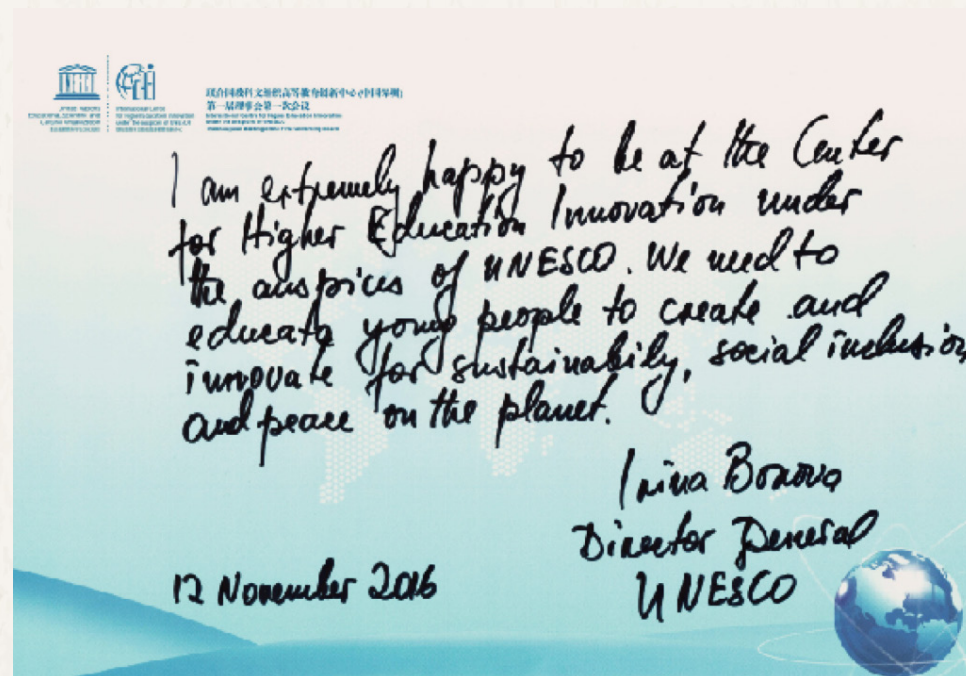 UNESCO
United Nations
Educational, Scientific and
Cultural Organization
International Centre
for Higher Education Innovation
under the auspices of UNESCO
联合国教科文组织高等教育创新中心(中国深圳)
第一届理事会第一次会议
International Centre for Higher Education Innovation
under the auspices of UNESCO
I am extremely happy to be at the Center
for Higher Education Innovation under
the auspices of UNESCO. We need to
educate young people to create and
innovate for sustainability, social inclusion,
and peace on the planet.
Irina Bokova
Director General
UNESCO
12 November 2016